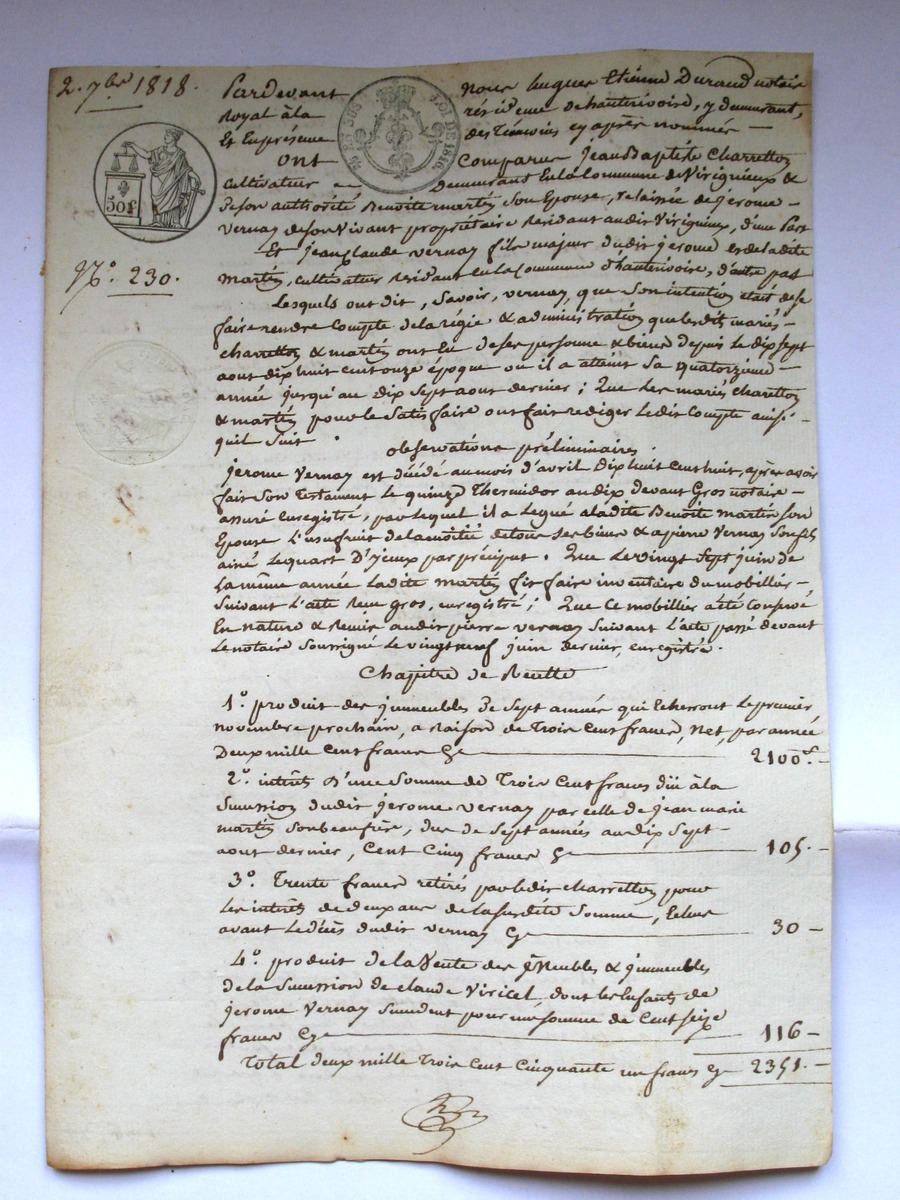 2. 7bre 1818.
Pardevant Nous hugues Etienne Durand notaire
Royal à la résidence de hauterivoire, y demeurant,
Et En présence des Témoins cy après nommés —
ont Comparus Jean Baptiste Charretton
Cultivateur demeurant En la Commune de Virignieux &
de son authorité Benoite martin Son Epouse, delaissée de jerome -
Vernay de son Vivant propriétaire Residant audit Virignieux, d'une Part
Et jean Claude Vernay fils majeur dudit jerome et de ladite
martin, cultivateur Residant en la Commune d'hauterivoire, d'autre part
N°. 230.
Lesquels ont dit, Savoir, Vernay, que Son intention était de se
faire rendre Compte de la régie & administration que lesdits mariés -
charretton & martin ont Eu de ses personne & biens depuis Le dix sept
aout dix huit cent onze époque ou il a atteint Sa quatorzième -
année jusqu'au Dix Sept aout dernier ; Que Les mariés charretton
& martin pour le Satisfaire ont fait rediger ledit Compte ainsi -
qu'il Suit.
observations préliminaires.
jerome Vernay est décédé au mois d'avril Dix huit Cent huit, après avoir
fait Son Testament Le quinze Thermidor an dix devant Gros notaire -
assuré enregistré, par lequel il a Légué a ladite Benoite martin son
Epouse L'usufruit de la moitié de tous Ses biens & a pierre Vernay Son fils
ainé Le quart D'iceux par préciput. Que Le vingt Sept juin de
La même année Ladite martin fit faire inventaire du mobillier -
Suivant L'acte Reçu Gros, enregistré ; Que Ce mobillier a été Conservé
En nature & Remis audit pierre Vernay Suivant L'acte passé devant
Le notaire Soussigné Le vingt neuf juin dernier, enregistré.
Chapitre de Recette
1°. produit des jmmeubles De Sept années qui Echerront Le premier
novembre prochain, a raison de Trois Cent francs, Net, par année
Deux mille Cent francs Cy 2100f. -
2°. intérêt D'une Somme de Trois Cent francs dûë à la
Sucession dudit jerome Vernay par celle de jean marie
martin Son beau frère, dus de Sept années au dix Sept -
aout dernier, Cent Cinq francs Cy 105. -
3°. Trente francs retirés par ledit charretton pour
Les intérêts de deux ans de la susdite Somme, Echus
avant Le décès dudit Vernay Cy 30 -
4°. produit de la Vente des Meubles & jmmeubles
de la Sucession de Claude Viricel dont les Enfants de
jerome Vernay pour une Somme de Cent Seize
francs Cy 116 -
Total deux mille Trois Cent Cinquante un francs Cy 2351. -
50c
LOI DE 1816